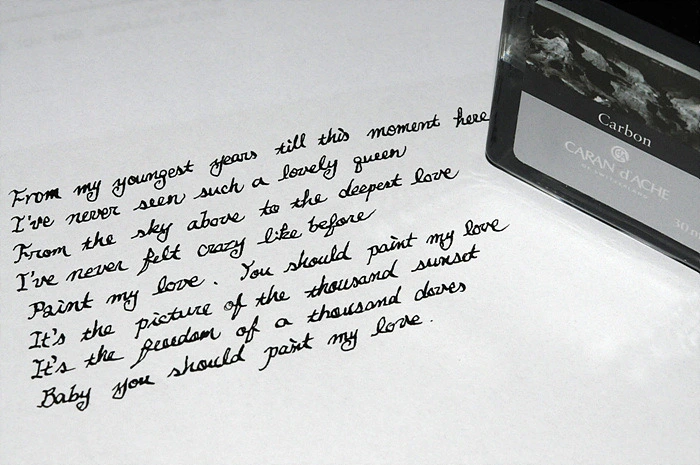 From my youngest years till this moment here
I've never seen such a lovely queen
From the sky above to the deepest love
I've never felt crazy like before
Paint my love. You should paint my love
It's the picture of the thousand sunset
It's the freedom of a thousand doves
Baby you should paint my love.
Carbon
CARAN d'ACHE
30 m